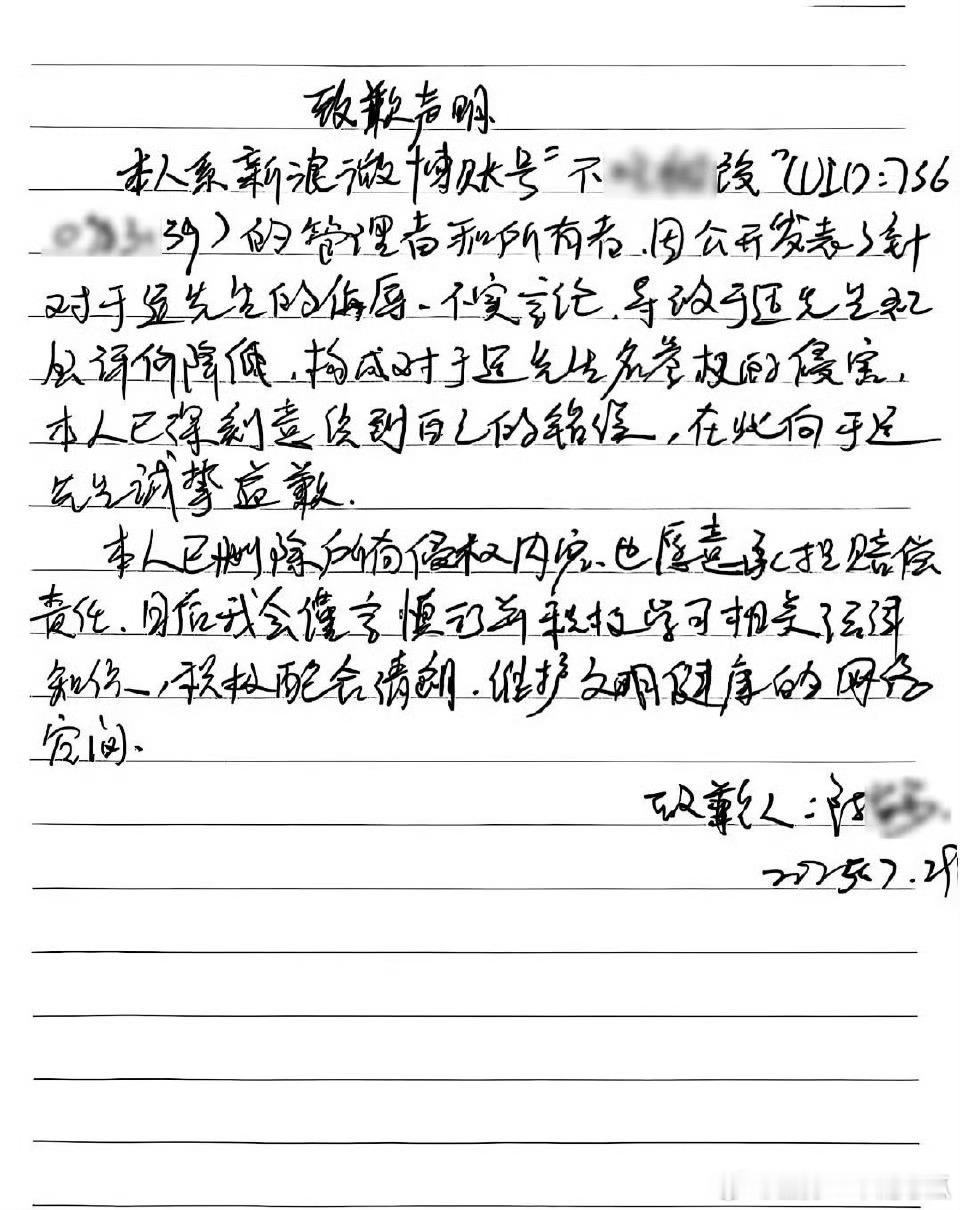 致歉声明
本人系新浪微博账号"不改"(UID:756
39)的管理者和所有者,因公开发表了针
对于适先生的侮辱、不实言论,导致于适先生社
会评价降低,构成对于适先生名誉权的侵害,
本人已深刻意识到自己的错误,在此向于适
先生诚挚道歉.
本人已删除所有侵权内容、也愿意承担赔偿
责任、日后我会谨言慎行并积极学习相关法律
知识,积极配合清朗、维护文明健康的网络
空间、
致歉人:陈
2025.7.29